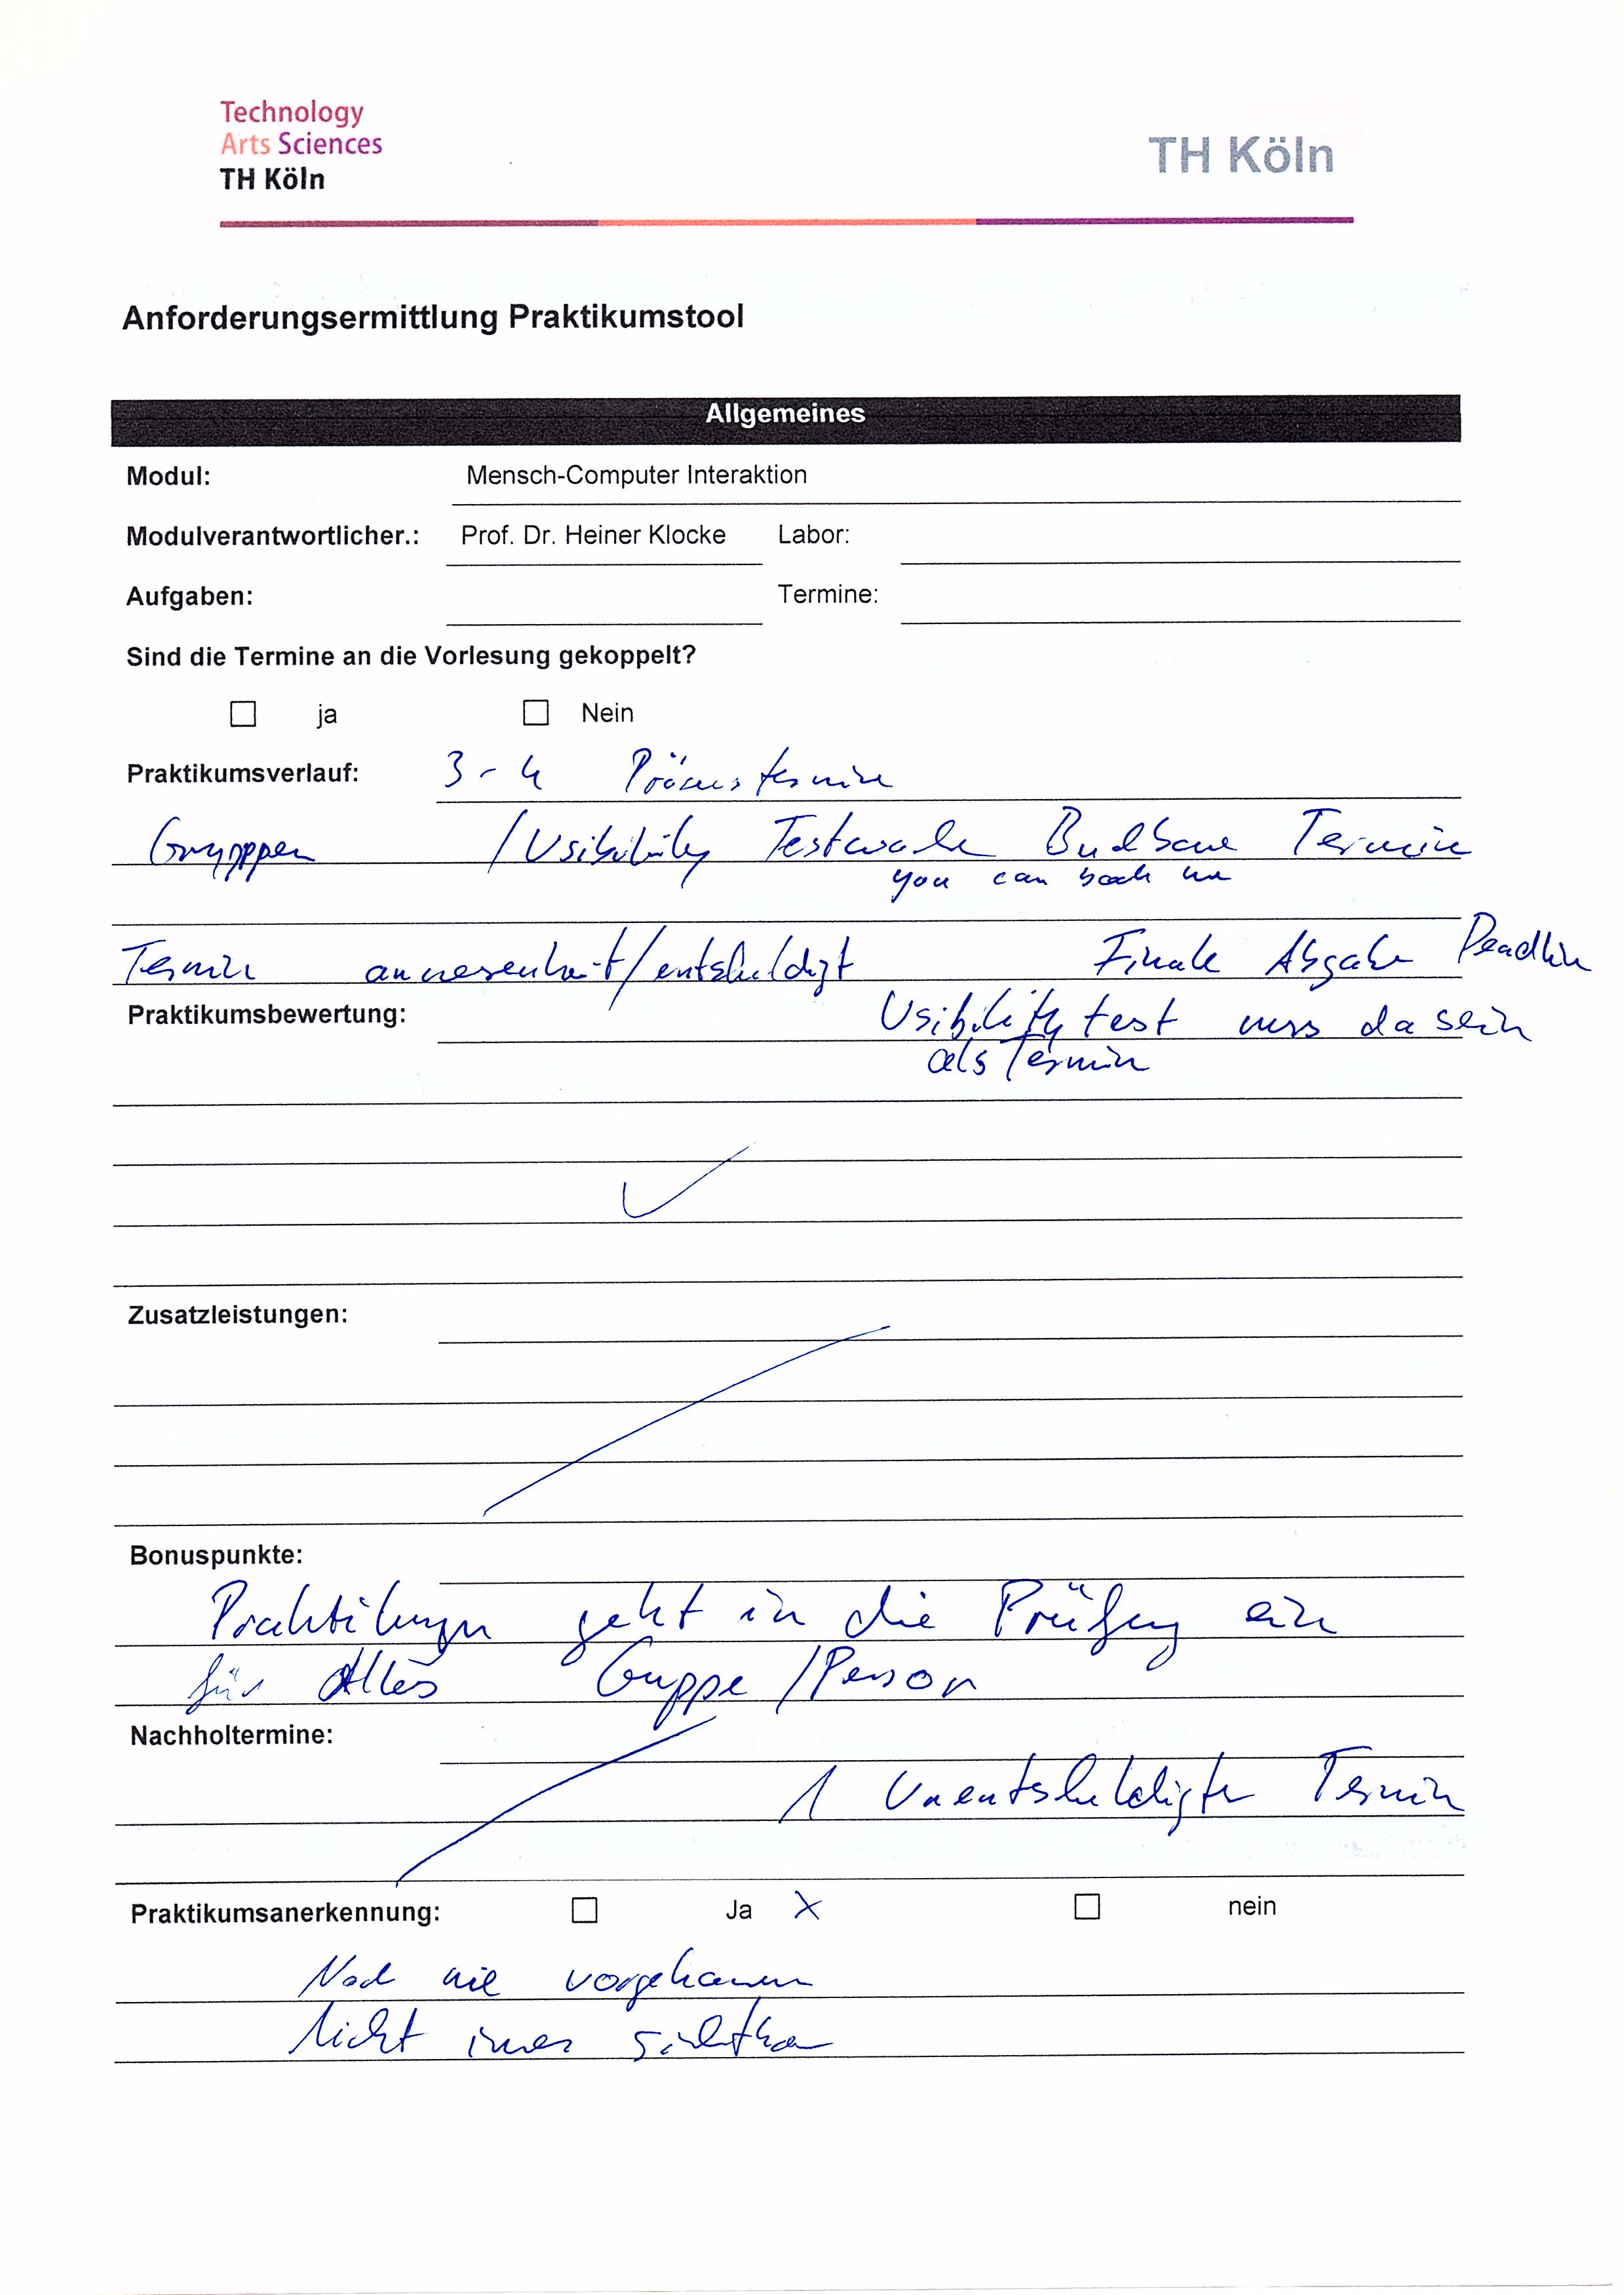 Technology
Arts Sciences
TH Köln
TH Köln
Anforderungsermittlung Praktikumstool
Allgemeines
Modul: Mensch-Computer Interaktion
Modulverantwortlicher.: Prof. Dr. Heiner Klocke Labor:
Aufgaben: Termine:
Sind die Termine an die Vorlesung gekoppelt?
ja Nein
Praktikumsverlauf: 3-4
Grupppen / Usibility Testwoche Buchbare Termin
you can book
Termin anwesenheit/entschuldigt Finale Abgabe Deadlin
Praktikumsbewertung: Usibility test muss da sein
als Termin
Zusatzleistungen:
Bonuspunkte:
Praktikum geht in die Prüfung ein
für Alles Gruppe /Person
Nachholtermine:
1 Unentschuldigter Termin
Praktikumsanerkennung: Ja X nein
Noch nie vorgekommen
Nicht immer sichtbar